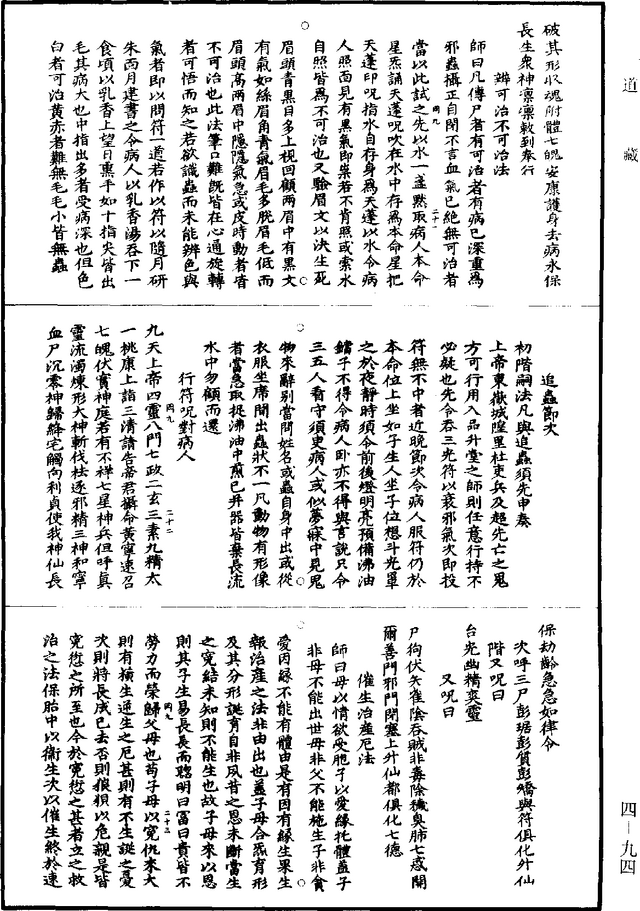 道藏
破其形收魂附體七魄安康護身去病永保
長生衆神稟稟敕到奉行
辨可治不可治法
師曰凡傳尸者有可治者有病已深重爲
邪蟲攝正自閉不言血氣已絕無可治者
當以此試之先以水一盞默取病人本命
星炁誦天蓬呪吹在水中存爲本命星把
天蓬印呪指水自存身爲天蓬以水令病
人照面見有黑氣即祟若不肯照或索水
自照皆爲不可治也又驗眉文以決生死
眉頭青黑目多上視回顧兩眉中有黑文
有氣如絲眉角青氣眉毛多脫眉毛低而
眉頭高兩眉中隱隱氣急或皮時動者皆
不可治也此法筆口難旣皆在心通旋轉
者可悟而知之若欲識蟲而未能辨色與
氣者即以問符一道若作以符以隨月研
朱丙月建書之令病人以乳香湯吞下一
食頃以乳香上望日熏手如十指尖皆出
毛其病大也中指出多者受病深也但色
白者可治黃赤者難無毛毛小皆無蟲
追蟲節次
初階嗣法凡與追蟲須先申奏
上帝東嶽城隍里社吏兵及超先亡之鬼
方可行用入品升堂之師則任意行持不
必疑也先令吞三光符以衰邪氣次即投
符無不中者近晚節次令病人服符仍於
本命位上坐如子生人坐子位想斗光罩
之於夜靜時須令前後燈明亮預備沸油
鐺子不得令病人卧亦不得與言說只令
三五人看守須臾病人或似夢寐中見鬼
物來辭別當問姓名或蟲自身中出或從
衣服坐席間出蟲狀不一凡動物有形像
者當急取捉沸油中煎已并器皆棄長流
水中勿顧而還
行符呪對病人
九天上帝四靈八門七政二玄三素九精太
一桃康上詣三清請告帝君攝命黃寧速召
七魄伏實神庭若有不祥七星神兵但呼眞
靈流濁煉形大神斬伐袪逐邪精三神和寧
血尸沉零神歸絳宅觸向利貞使我神仙長
保劫齡急急如律令
次呼三尸彭琚彭質彭矯與符俱化外仙
階又呪曰
台光幽精爽靈
又呪曰
尸狗伏矢雀陰吞賊非毒除穢臭肺七惑開
爾善門邪門閉塞上升仙都俱化七德
催生治產厄法
師曰母以情欲受胞子以愛緣托體蓋子
非母不能出世母非父不能施生子非貪
愛因緣不能有體由是有因有緣生果生
報治產之法非由出也蓋子母合炁育形
及其分形誕育自非夙昔之恩未斷當生
之寃結未知則不能生也故子母來以恩
則其子生易長長而聰明曰富曰貴皆不
勞力而榮歸父母也苟子母以寃仇來大
則有橫生逆生之厄甚則有不生誕之憂
次則將長成已去否則狼狽以危親是皆
寃愆之所至也今於寃愆之甚者立之救
治之法保胎中以衛生次以催生終於速
四—九四